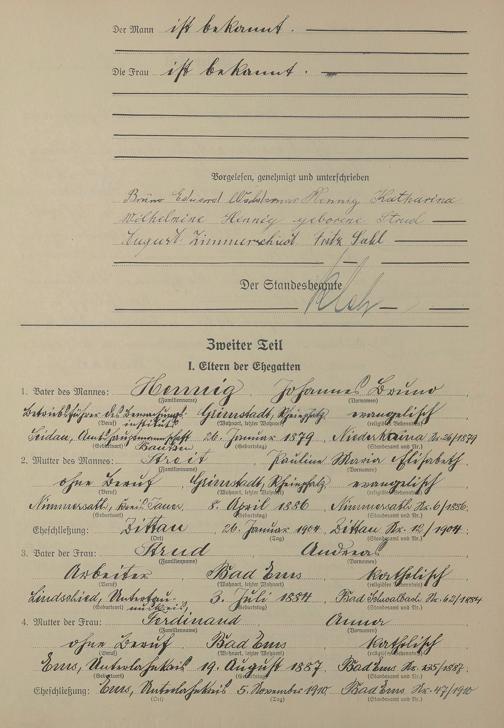 Der Mann ist bekannt.
Die Frau ist bekannt.
Vorgelesen, genehmigt und unterschrieben
Bruno Eduard Hennig Katharina
Wilhelmine Hennig geborene Strud
August Zimmerschied Fritz Sahl
Der Standesbeamte
Zweiter Teil
I. Eltern der Ehegatten
1. Vater des Mannes: Hennig Johannes Bruno
(Familienname) (Vornamen)
Betriebsführer des Bewachungs- Grünstadt, Rheinpfalz evangelisch
instituts
(Beruf) (Wohnort, letzter Wohnort) (religiöses Bekenntnis)
Seidau, Amtshauptmannschaft 26. Januar 1879 Niederkaina Nr. 26/1879
Bautzen
(Geburtsort) (Geburtstag) (Standesamt und Nr.)
2. Mutter des Mannes: Streit Pauline Maria Elisabeth
(Familienname) (Vornamen)
ohne Beruf Grünstadt, Rheinpfalz evangelisch
(Beruf) (Wohnort, letzter Wohnort) (religiöses Bekenntnis)
Nimmersath, Kreis Jauer 8. April 1886 Nimmersath Nr. 6/1886.
(Geburtsort) (Geburtstag) (Standesamt und Nr.)
Eheschließung: Zittau 26. Januar 1904 Zittau Nr. 12/1904.
(Ort) (Tag) (Standesamt und Nr.)
3. Vater der Frau: Strud Andreas
(Familienname) (Vornamen)
Arbeiter Bad Ems katholisch
(Beruf) (Wohnort, letzter Wohnort) (religiöses Bekenntnis)
Lindschied, Untertaunuskreis 3. Juli 1884 Bad Schwalbach Nr. 42/1884
(Geburtsort) (Geburtstag) (Standesamt und Nr.)
4. Mutter der Frau: Ferdinand Anna
(Familienname) (Vornamen)
ohne Beruf Bad Ems katholisch
(Beruf) (Wohnort, letzter Wohnort) (religiöses Bekenntnis)
Ems, Unterlahnkreis 19. August 1887 Bad Ems Nr. 135/1887.
(Geburtsort) (Geburtstag) (Standesamt und Nr.)
Eheschließung: Ems, Unterlahnkreis 5. November 1910 Bad Ems Nr. 47/1910
(Ort) (Tag) (Standesamt und Nr.)